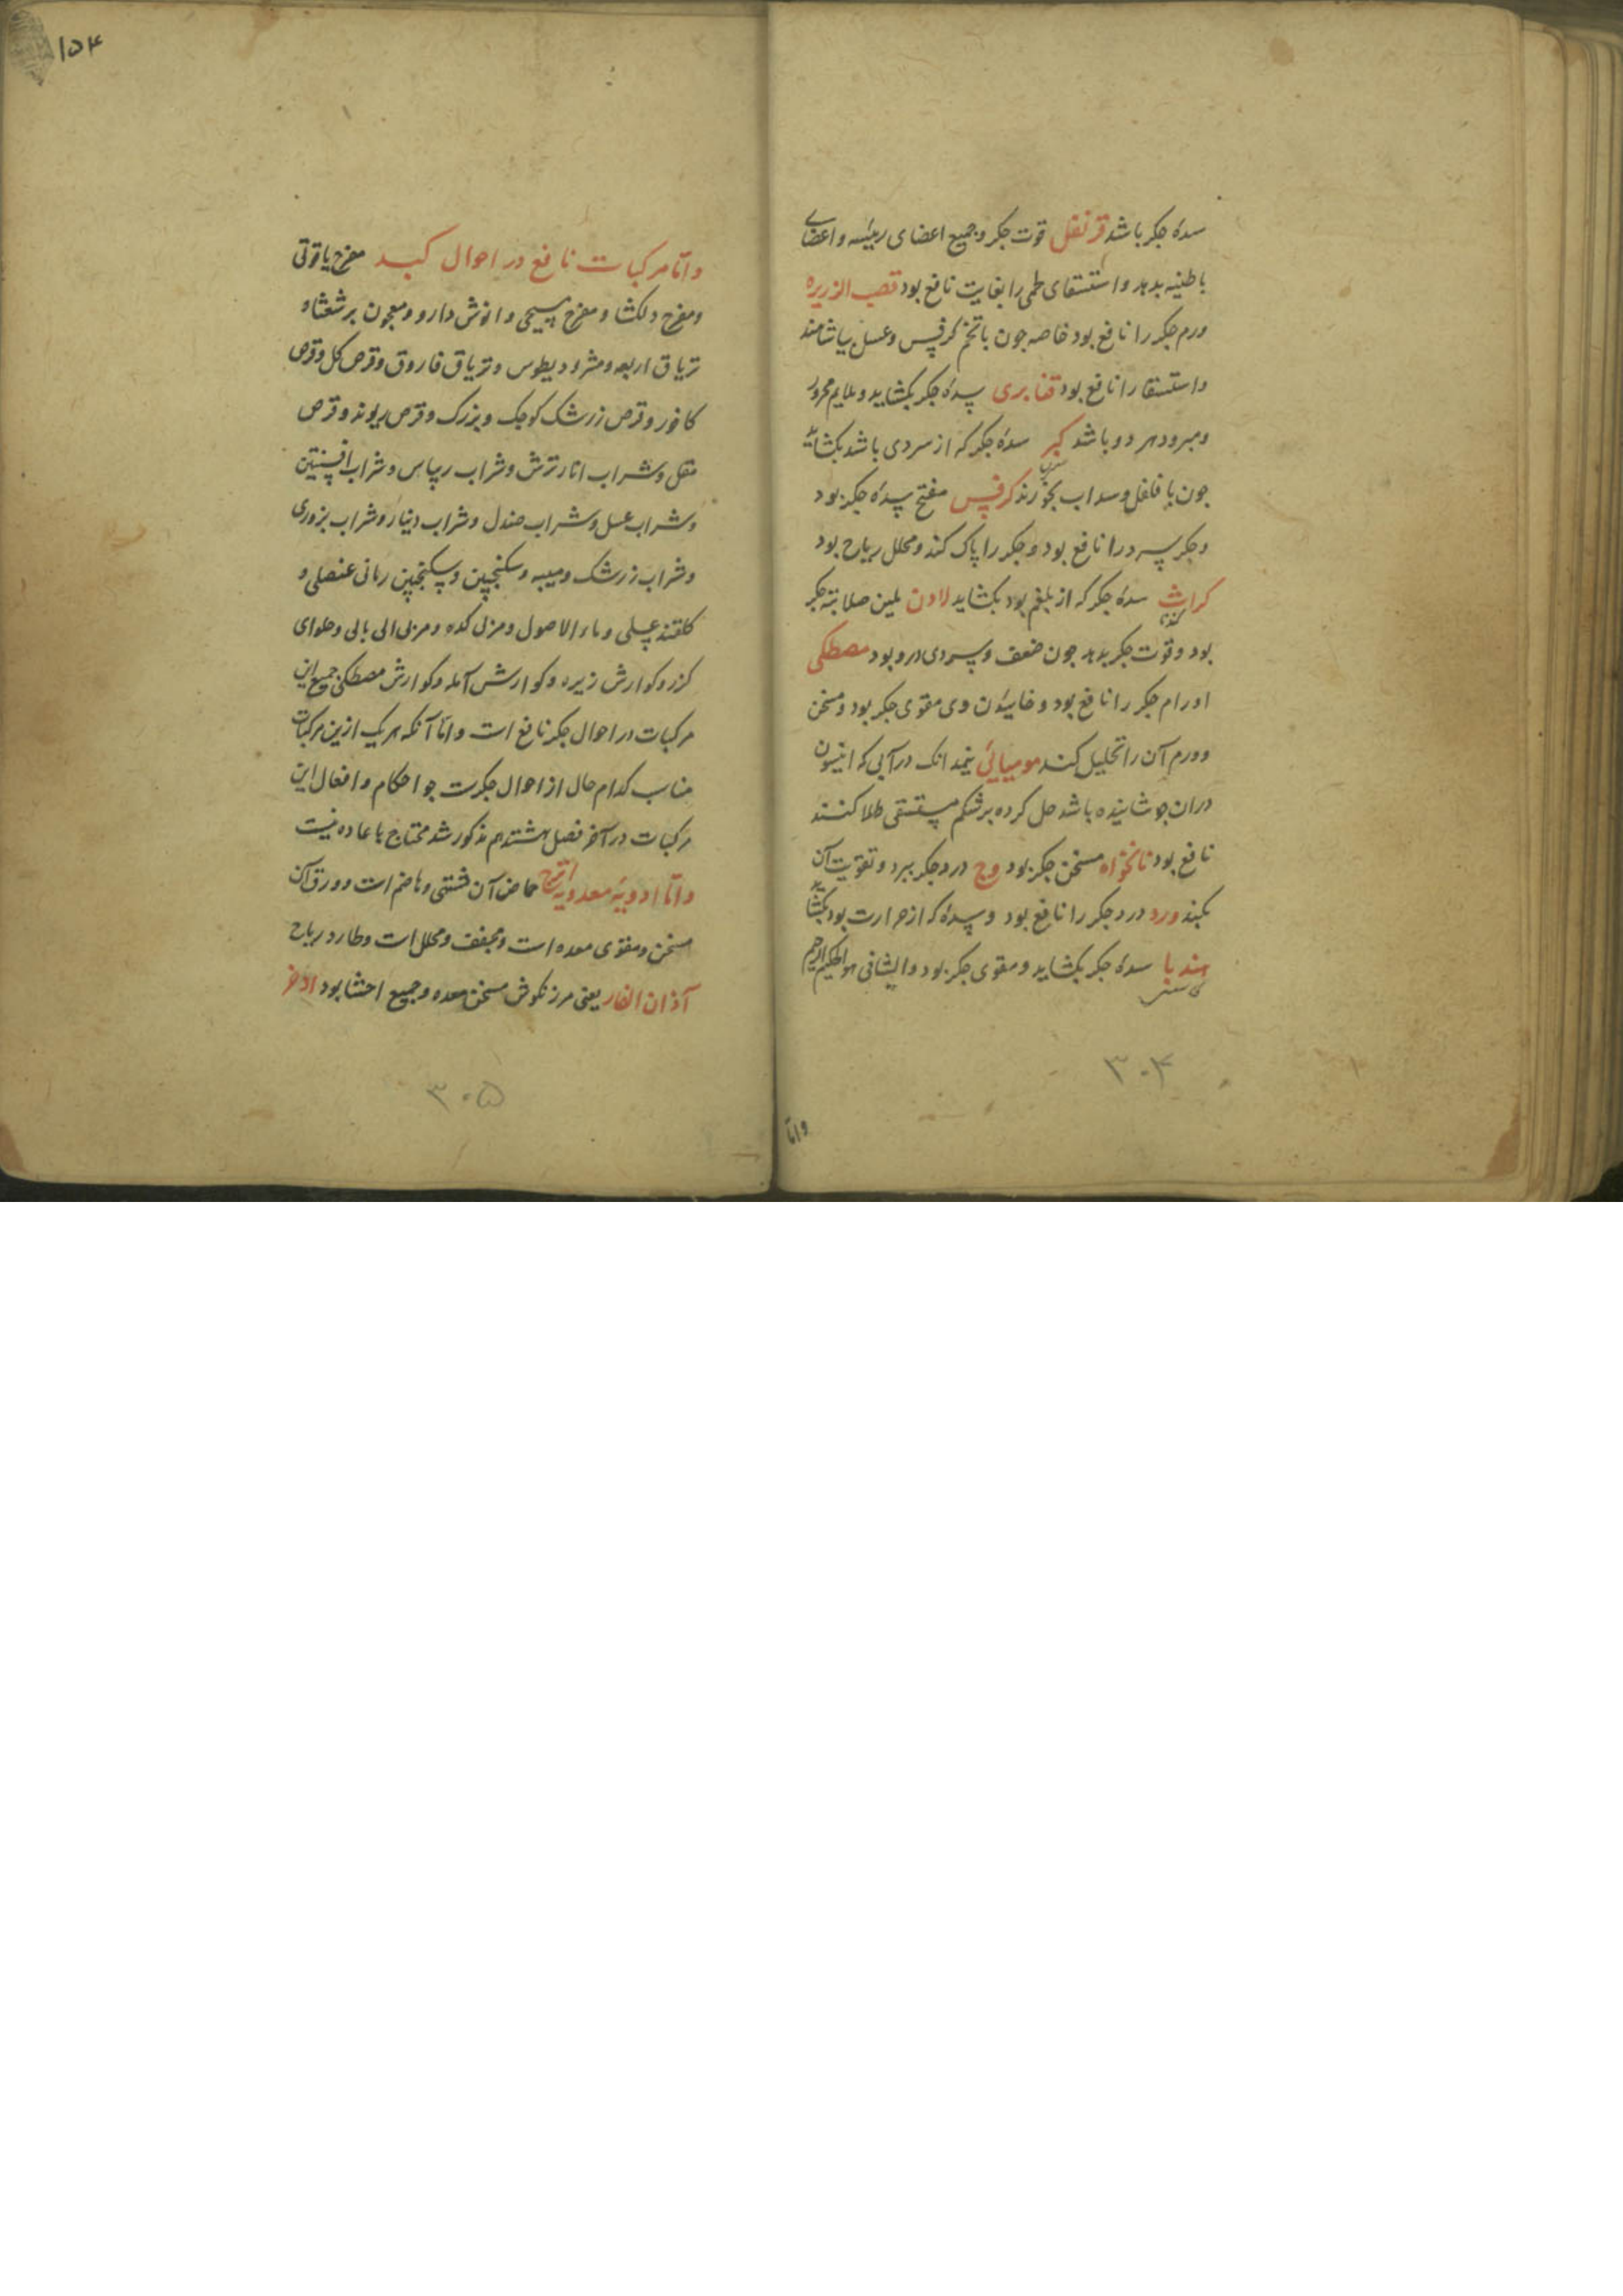 سدهٔ جکر باشد قرنفل قوت جکر و جمیع اعضای رئیسه و اعضای
باطنیه بدهد و استسقای لحمی را بغایت نافع بود قصب الذریره
ورم جکر را نافع بود خاصه جون با تخم کرفس و عسل بیاشامند
و استسقا را نافع بود قنابری سدهٔ جکر بکشاید و ملایم محرور
و مبرود هر دو باشد کبر سدهٔ جکر که از سردی باشد بکشاید
جون با فلفل و سداب بخورند کرفس مفتح سدهٔ جکر بود
و جکر سرد را نافع بود و جکر را پاک کند و محلل ریاح بود
کراث سدهٔ جکر که از بلغم بود بکشاید لادن ملین صلابته جکر
کندنا
بود و قوت جکر بدهد جون ضعف و سردی درو بود مصطکی
اورام جکر را نافع بود و خاییدن وی مقوی جکر بود و مسخن
و ورم آن را تحلیل کند مومیائی نیمدانک در آبی که انیسون
دران جوشانیده باشد حل کرده بر شکم مستسقی طلا کنند
نافع بود نانخواه مسخن جکر بود وج درد جکر ببرد و تقویت آن
بکند ورد درد جکر را نافع بود و سدهٔ که از حرارت بود بکشاید
هندبا سدهٔ جکر بکشاید و مقوی جکر بود والشافی هو الحکیم الرحیم
کاسنی
۳۰۴
واما
۱۵۴
واما مرکبات نافع در احوال کبد مفرح یاقوتی
و مفرح دلکشا و مفرح مسیحی و انوش دارو و معجون برشعثا و
تریاق اربعه و مثرودیطوس و تریاق فاروق و قرص کل و قرص
کافور و قرص زرشک کوجک و بزرک و قرص ریوند و قرص
مقل و شراب انار ترش و شراب ریباس و شراب افسنتین
و شراب عسل و شراب صندل و شراب دینار و شراب بزوری
و شراب زرشک و میبه و سکنجبین و سکنجبین رمانی عنصلی و
کلقند عسلی و ماء الاصول و مزلی کده و مزلی الی بالی و حلوای
کزر و کوارش زیره و کوارش آمله و کوارش مصطکی جمیع این
مرکبات در احوال جکر نافع است و اما آنکه هر یک ازین مرکبات
مناسب کدام حال از احوال جکرست جو احکام و افعال این
مرکبات در آخر فصل هشتدهم مذکور شد محتاج باعاده نیست
واما ادویهٔ معدویه اترج حماض آن مشتهی و هاضم است و ورق آن
مسخن و مقوی معده است و مجفف و محلل است و طارد ریاح
آذان الفار یعنی مرزنکوش مسخن معده و جمیع احشا بود اذخر
۳۰۵